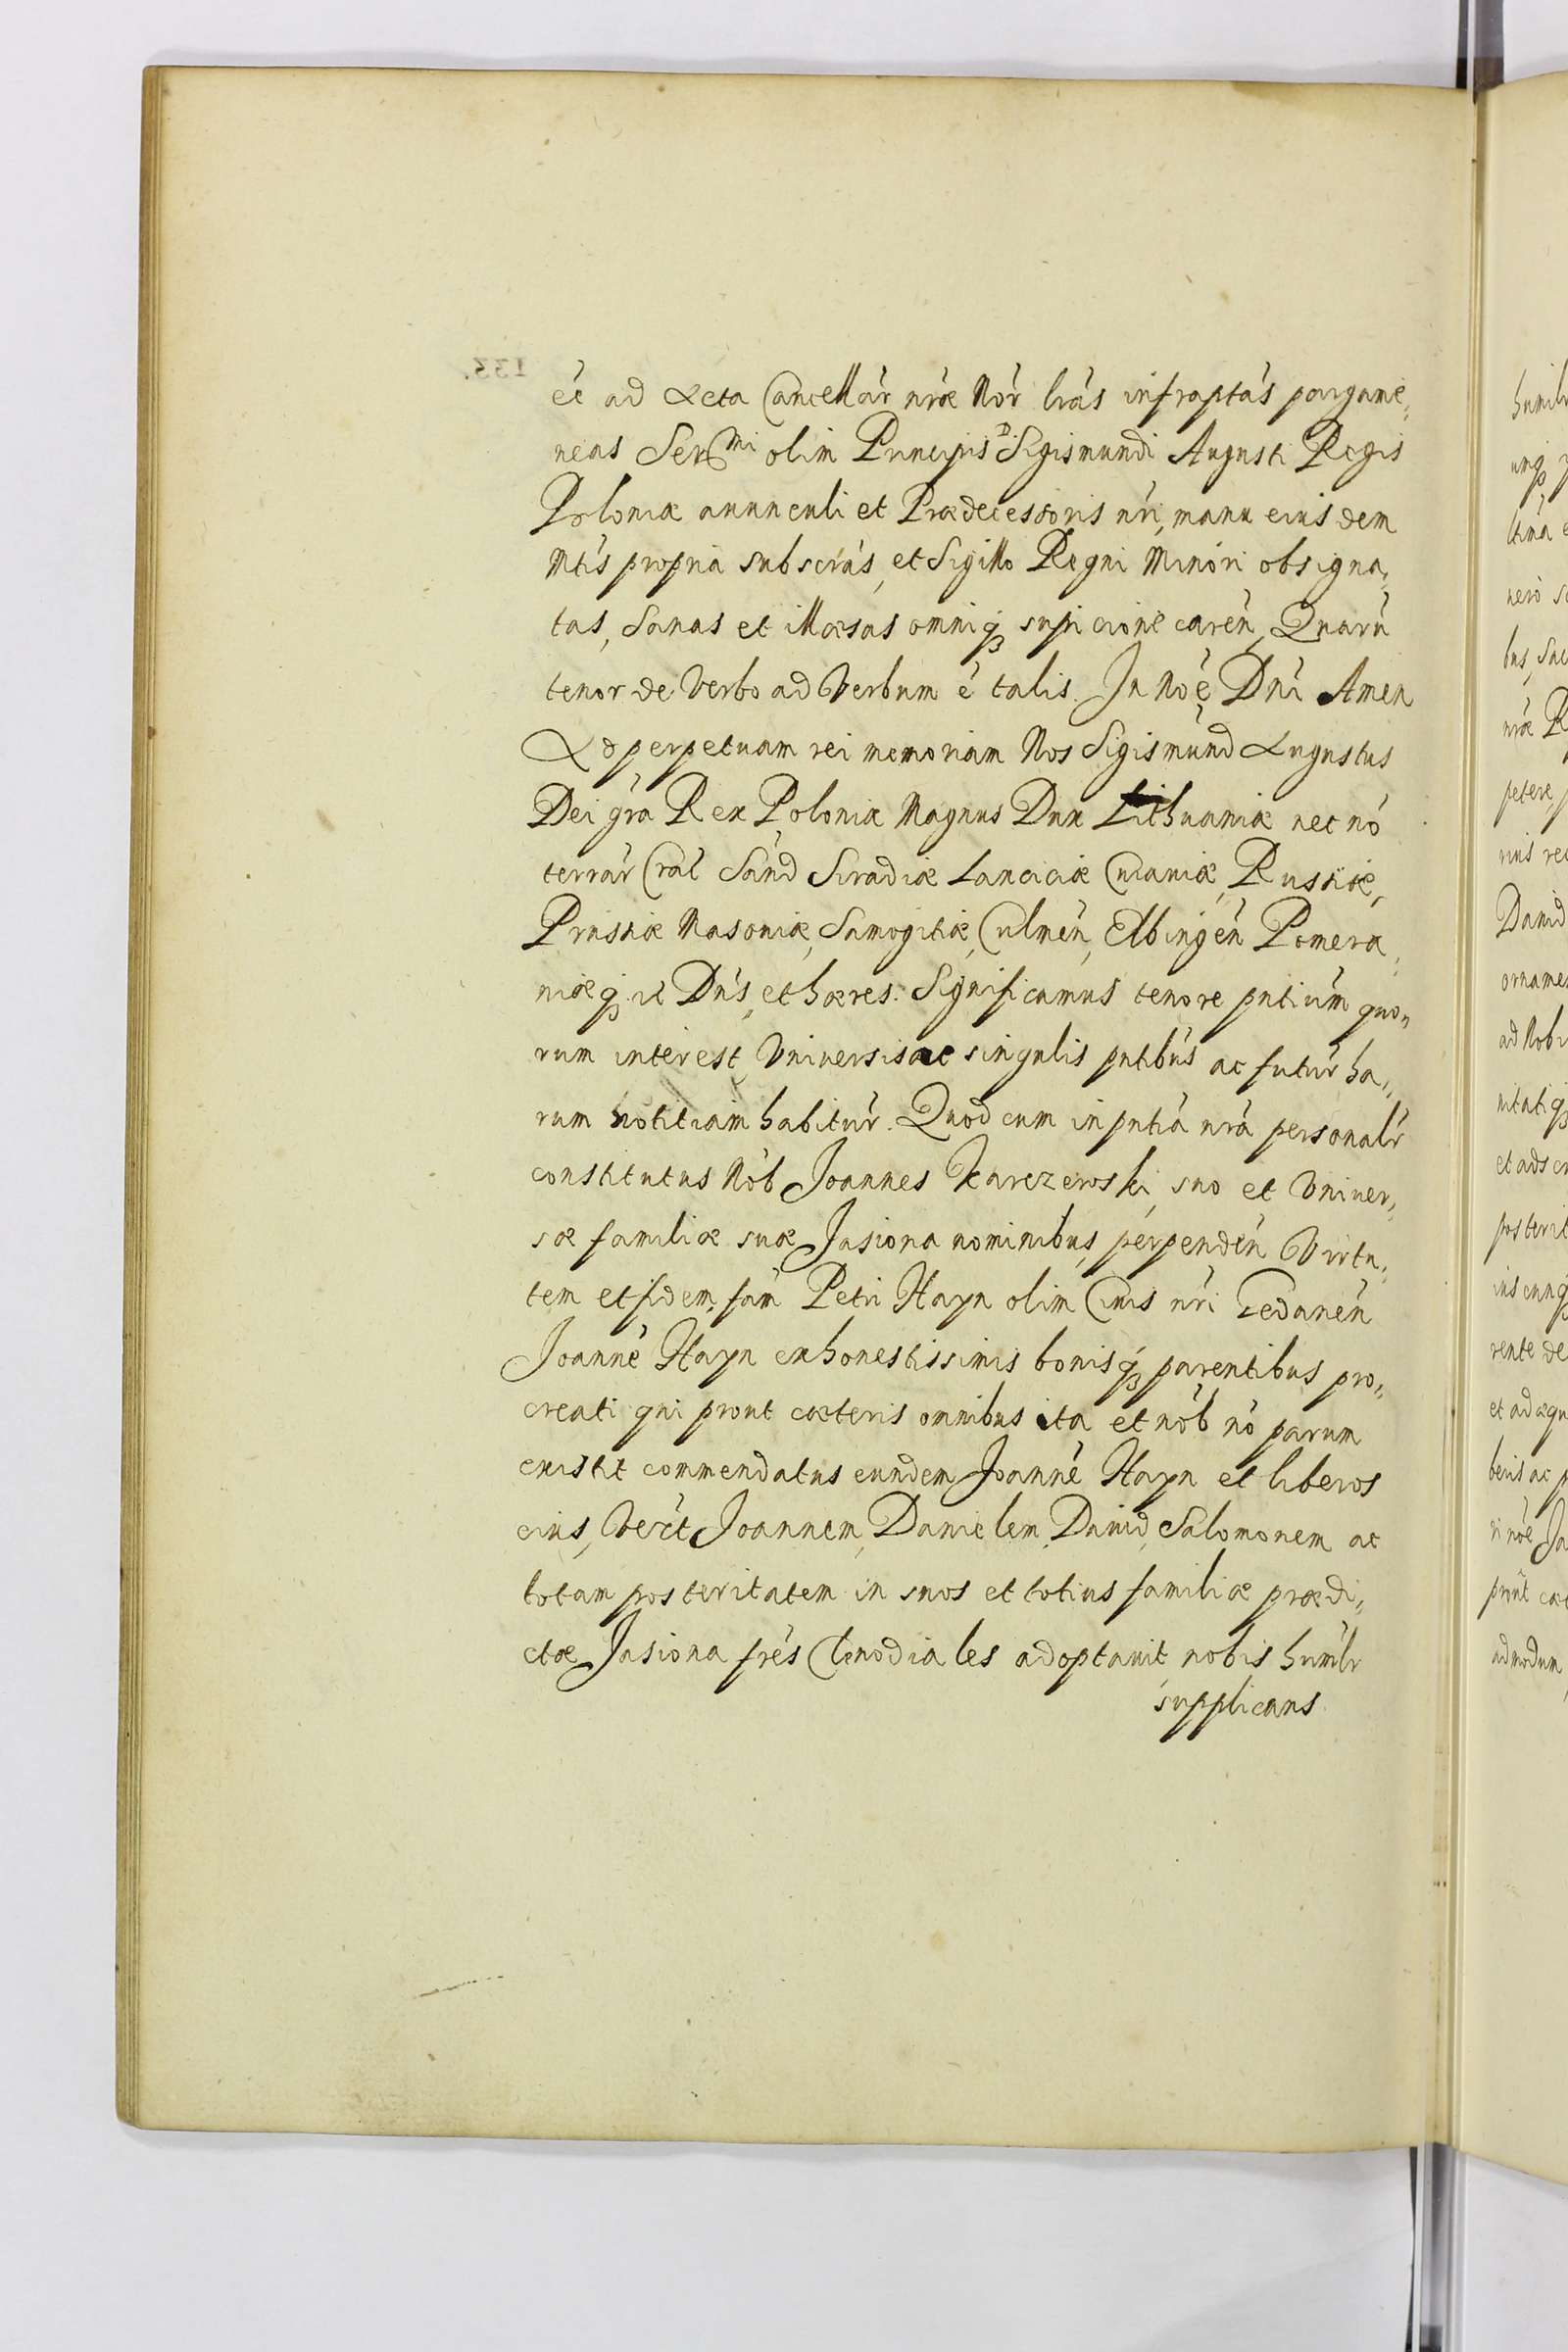 eé ad Acta Cancellar̀ nr̀æ Nor̀ lrás infraptás pargame=
neas Serᵐⁱ olim Principis D Sigismundi Augusti Regis
Poloniæ auunculi et Prædecessoris nr̀i, manu eiusdem
Mtis propria subscrás, et Sigillo Regni Minori obsigna=
tas, Sanas et illæsas omniq; supicionè caren̄, Quarū
tenor de Verbo ad Verbum é talis. In Noé Dni Amen
Ad perpetuam rei memoriam Nos Sigismund Augustus
Dei gra Rex Poloniæ Magnus Dux Lithuaniæ nec nó
terrar̀ Cral̀ Sand Siradiæ Lanciciæ Cuiauiæ, Russiæ,
Prussiæ Masoniæ, Samogitiæ, Culmen̄, Elbingen̄ Pomera=
niæq; Dnś, et hæres. Significamus tenore pntium quo=
rum interest Vniuersis ac singulis pntibus ac futur̀ ha=
rum notitiam habitur̀. Quod cum in pntiá nrá personalr̀
constitutus Nob̀ Joannes Karczewski, suo et Vniuer=
sæ familiæ suæ Jasiona nominibus, perpenden̄ Virtu=
tem et fidem, fam̀ Petri Hayn olim Ciuis nr̀i Gedanen̄
Joannè Hayn ex honestissimis bonisq; parentibus pro=
creati qui prout cæteris omnibus ita et nob̀ nó parum
existit commendatus eundem Joannè Hayn et liberos
eius, Vect̀ Joannem, Danielem, Dauid, Salomonem ac
totam posteritatem in suos et totius familiæ prædi=
ctæ Jasiona frés Clenodiales adoptauit, nobis humilr̀
supplicans